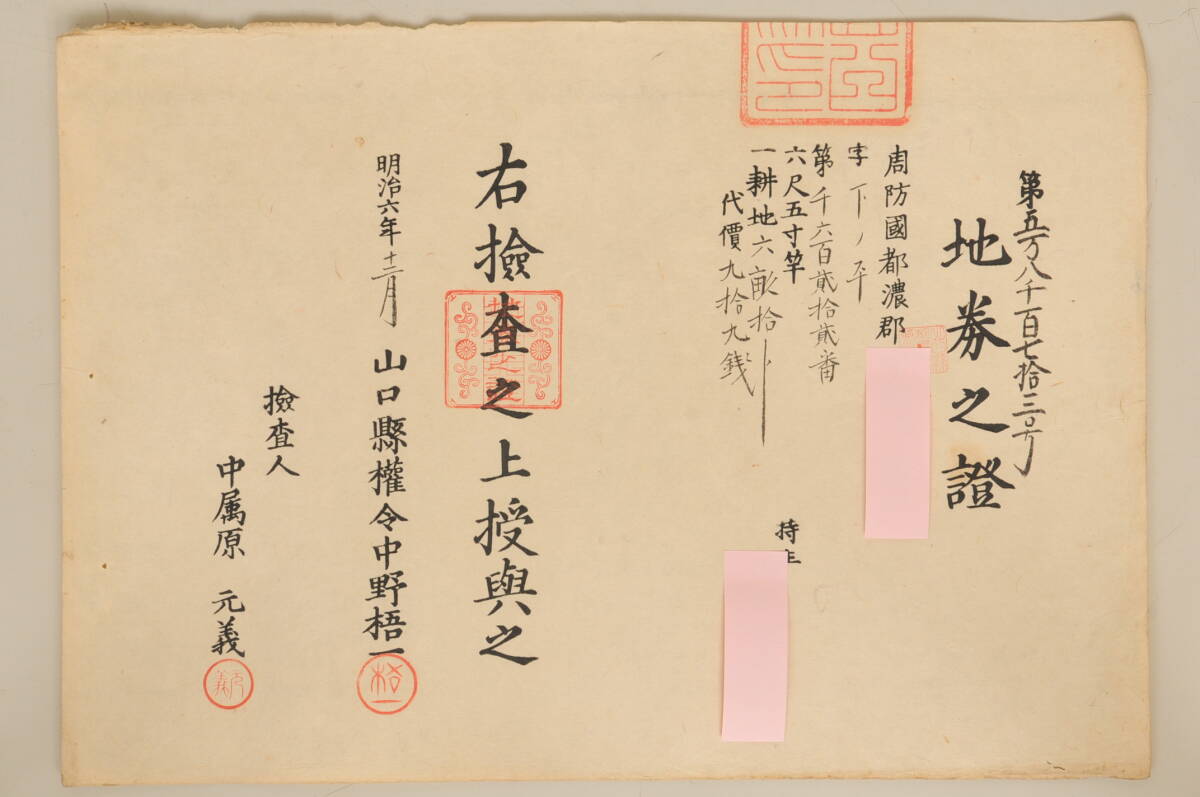 第五万八千百七拾三号
地券之證
周防國都濃郡
字下ノ平
第千六百貳拾貳番
六尺五寸竿
一耕地六畝拾
代價九拾九銭
持主
右撿査之上授與之
明治六年十二月
山口縣權令中野梧一
撿査人
中属原 元義